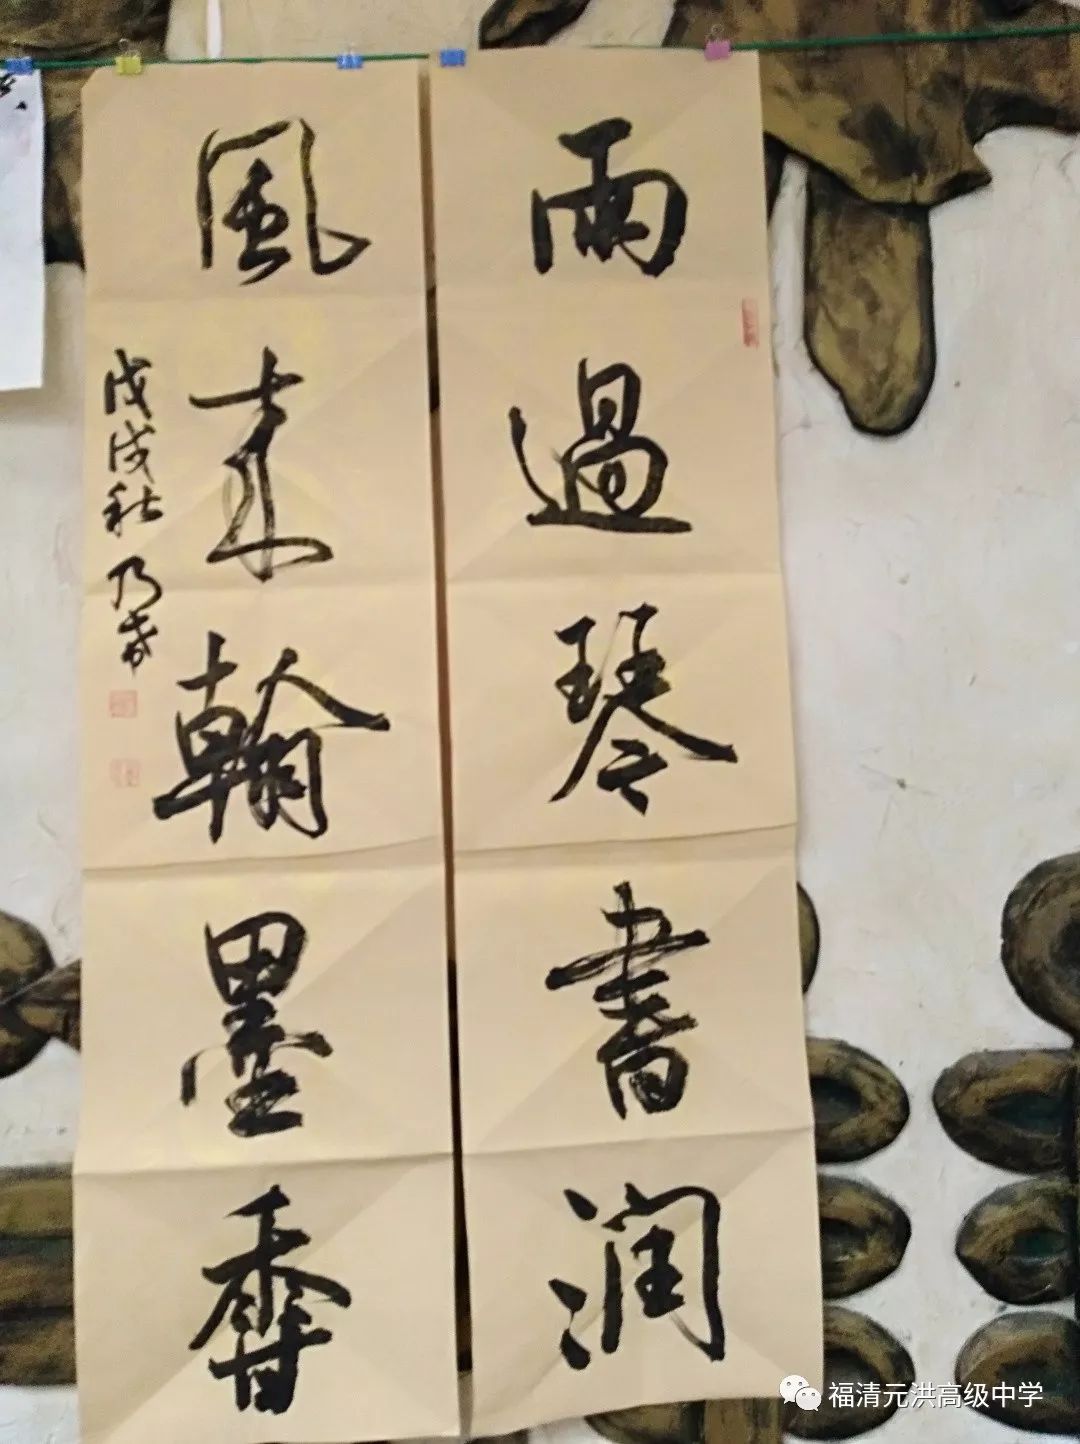 雨過琴書潤
風来翰墨香
戊戌秋乃
福清元洪高级中学